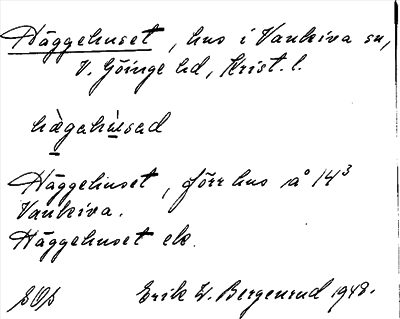 Häggehuset, hus i Vankiva sn,
V. Göinge hd, Krist. l.
hàgahúsad
Häggehuset, förr hus å 14³
Vankiva.
Häggehuset ek.
Erik W. Bergenrud 1948.